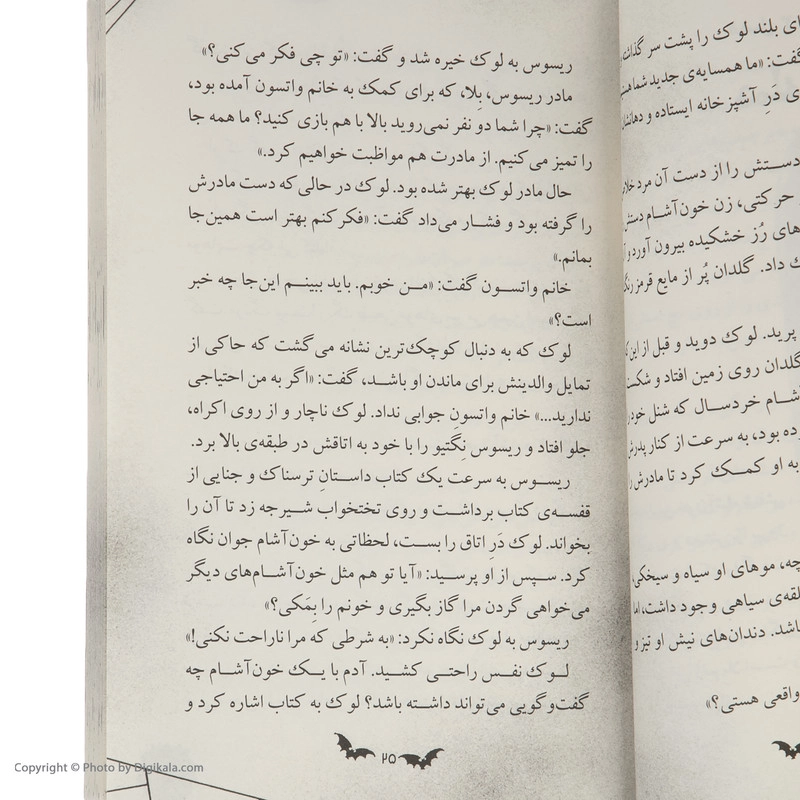 ریسوس به لوک خیره شد و گفت: «تو چی فکر می‌کنی؟»
مادر ریسوس، بِلا، که برای کمک به خانم واتسون آمده بود،
گفت: «چرا شما دو نفر نمی‌روید بالا با هم بازی کنید؟ ما همه جا
را تمیز می‌کنیم. از مادرت هم مواظبت خواهیم کرد.»
حال مادر لوک بهتر شده بود. لوک در حالی که دست مادرش
را گرفته بود و فشار می‌داد گفت: «فکر کنم بهتر است همین‌جا
بمانم.»
خانم واتسون گفت: «من خوبم. باید ببینم این‌جا چه خبر
است؟»
لوک که به دنبال کوچک‌ترین نشانه می‌گشت که حاکی از
تمایل والدینش برای ماندن او باشد، گفت: «اگر به من احتیاجی
ندارید...» خانم واتسون جوابی نداد. لوک ناچار و از روی اکراه،
جلو افتاد و ریسوس نِگَتیو را با خود به اتاقش در طبقه‌ی بالا برد.
ریسوس به سرعت یک کتاب داستانِ ترسناک و جنایی از
قفسه‌ی کتاب برداشت و روی تختخواب شیرجه زد تا آن را
بخواند. لوک دَرِ اتاق را بست، لحظاتی به خون‌آشام جوان نگاه
کرد. سپس از او پرسید: «آیا تو هم مثل خون‌آشام‌های دیگر
می‌خواهی گردن مرا گاز بگیری و خونم را بِمَکی؟»
ریسوس به لوک نگاه نکرد: «به شرطی که مرا ناراحت نکنی!»
لوک نفس راحتی کشید. آدم با یک خون‌آشام چه
گفت‌وگویی می‌تواند داشته باشد؟ لوک به کتاب اشاره کرد و
۲۵
ای بلند لوک را پشت سر
گفت: «ما همسایه‌ی جدید شما
ی دَرِ آشپزخانه ایستاده و
دستش را از دست آن مرد
حرکتی، زن خون‌آشام دستش
های رُز خشکیده بیرون آورد و
ک داد. گلدان پُر از مایع قرمز
پرید. لوک دوید و قبل از
گلدان روی زمین افتاد و
شام خردسال که شنل
ده بود، به سرعت از کنار پدرش
به او کمک کرد تا مادرش
چه، موهای او سیاه و سیخکی
لقه‌ی سیاهی وجود داشت، اما
اشد. دندان‌های نیش او نیز
واقعی هستی؟»
Copyright © Photo by Digikala.com